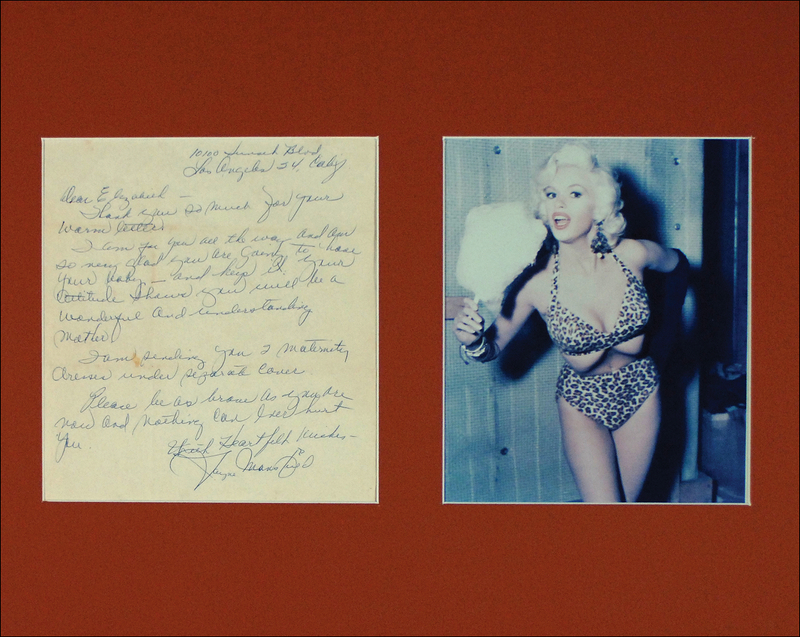 10100 Sunset Blvd
Los Angeles 24, Calif
Dear Elizabeth —
Thank you so much for your
warm letter
I am for you all the way and am
so very glad you are going to have
your baby — and keep it your
attitude shows you will be a
wonderful and understanding
Mother
I am sending you 2 maternity
dresses under separate cover
Please be as brave as you are
now and nothing can ever hurt
you.
With Heartfelt Wishes —
Jayne Mansfield